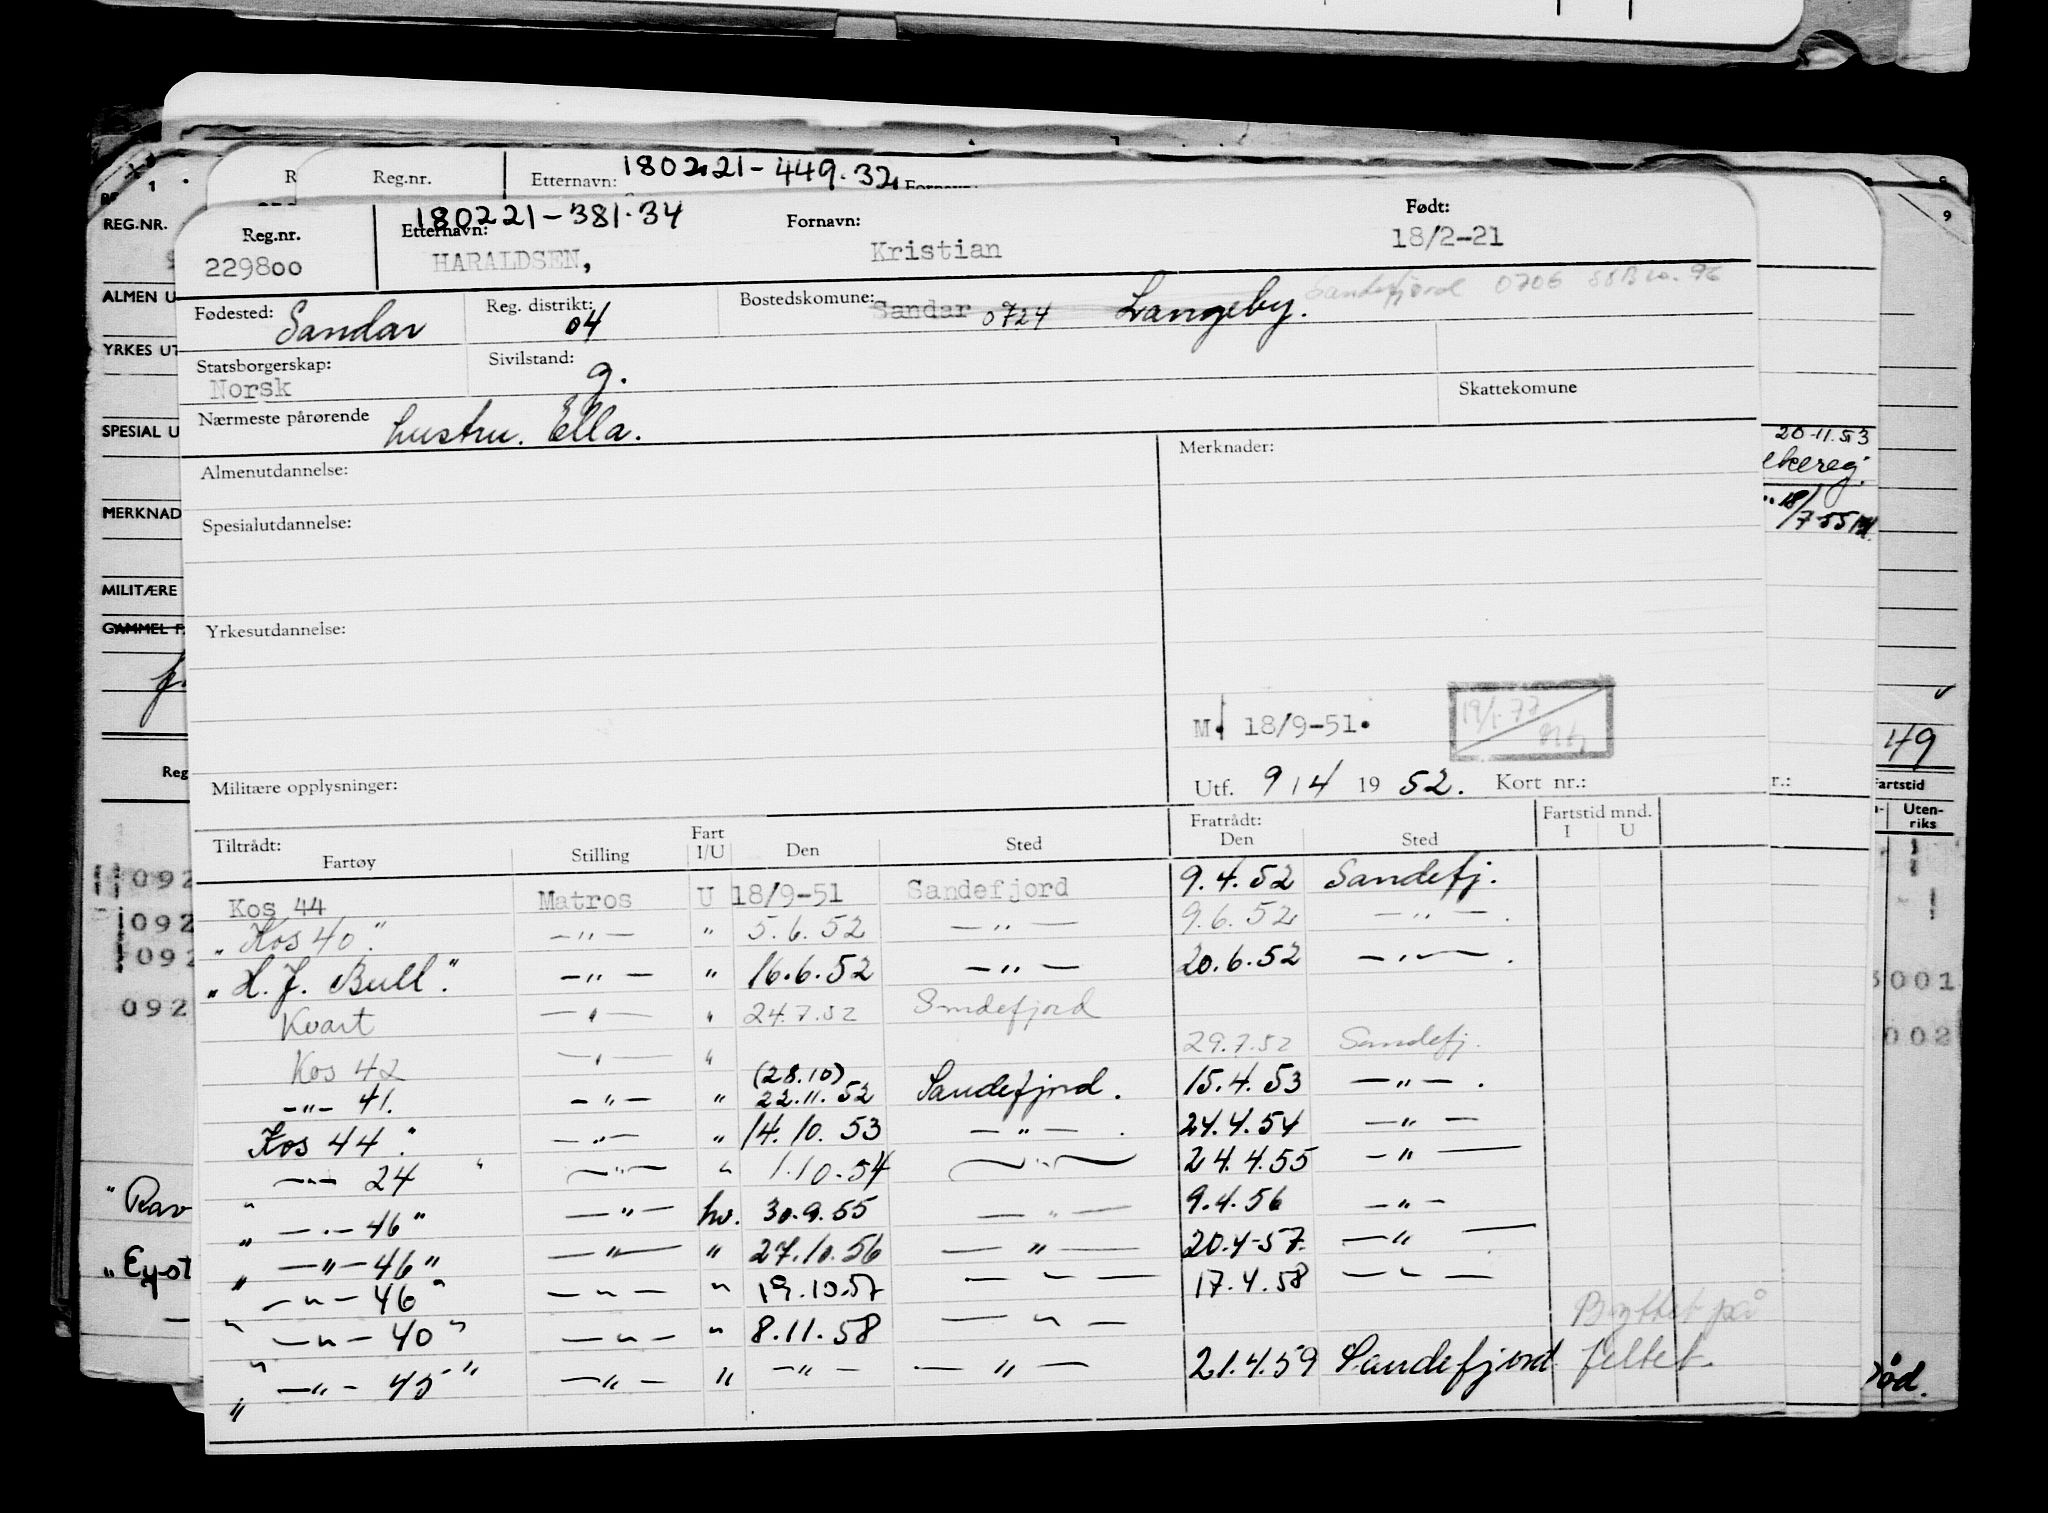 R Reg.nr. Etternavn: 180221-449.32 Fornavn:
REG.NR.
ALMEN U
YRKES UT
SPESIAL U
MERKNAD
MILITÆRE
GAMMEL F
Reg
092
092
092
092
"Rav
"Eyst
180221-381.34
Reg.nr. Etternavn: Fornavn: Født:
229800 HARALDSEN, Kristian 18/2-21
Fødested: Sandar Reg. distrikt: 04 Bostedskomune: Sandar 0724 Langeby. Sandefjord 0706
Statsborgerskap: Norsk Sivilstand: g.
Skattekomune
Nærmeste pårørende hustru. Ella.
Almenutdannelse: Merknader:
Spesialutdannelse:
Yrkesutdannelse:
M. 18/9-51. 19/1-77
Militære opplysninger: Utf. 9/4 1952. Kort nr.:
Tiltrådt: Fratrådt: Fartstid mnd.
Fartøy Stilling Fart I/U Den Sted Den Sted I U
Kos 44 Matros U 18/9-51 Sandefjord 9.4.52 Sandefj.
"Kos 40" —"— " 5.6.52 —"— 9.6.52 —"—.
"H. J. Bull" —"— " 16.6.52 —"— 20.6.52 —"—.
Kvart —"— " 24.7.52 Sandefjord
Kos 42 —"— " 29.7.52 Sandefj.
—"— 41. —"— " (28.10) 22.11.52 Sandefjord. 15.4.53 —"—.
Kos 44" —"— " 14.10.53 —"—. 24.4.54 —"—
—"— 24 " —"— " 1.10.54 —"— 24.4.55 —"—
" —"— 46" —"— hv. 30.9.55 —"— 9.4.56 —"—
" —"— 46" —"— " 27.10.56 —"— 20.4-57. —"—
" —"— 46" —"— " 19.10.57 —"— 17.4.58 —"—
" —"— 40" —"— " 8.11.58 —"— Byttet på
" —"— 45" —"— " —"— —"— 21.4.59 Sandefjord feltet.
9
20-11.53
18/7-55
49
r.: Fartstid
Uten-
riks
001
002
død.